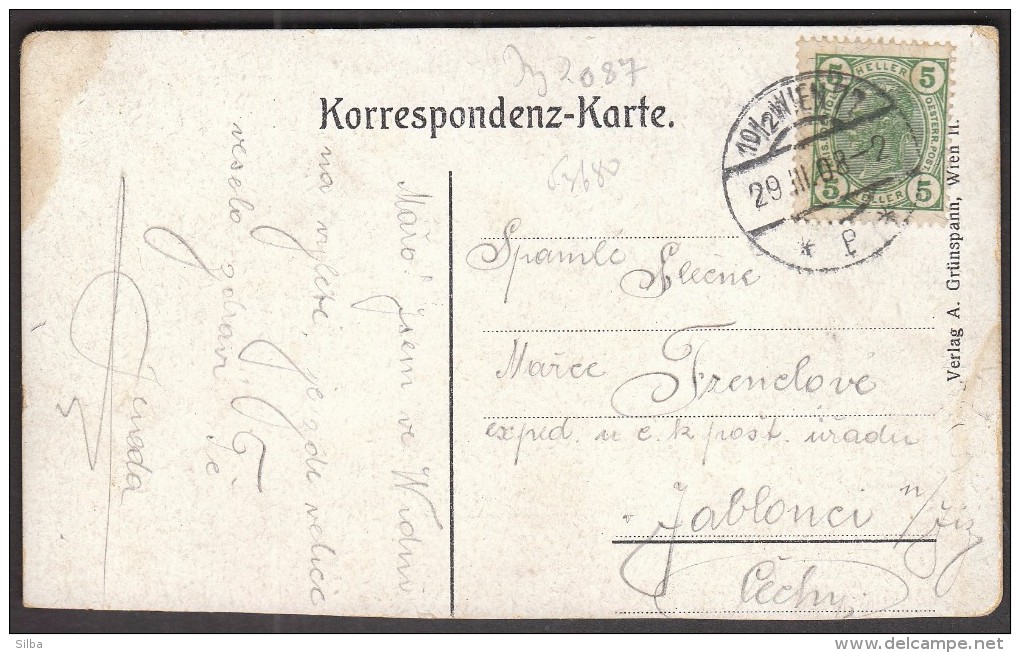 2087
Korrespondenz-Karte.
5 HELLER 5
5 HELLER 5
OESTERR. POST
10/1 WIEN
29.III.08
* *
Mařo! Jsem ve Vídni
na výletě, je zde velice
veselo zdraví Tě
Jenda
Slečně
Mařce Frenclové
exped. u c. k. pošt. úřadu
Jablonci n/Jiz
Čechy
Verlag A. Grünspann, Wien II.
Silba
www.delcampe.net